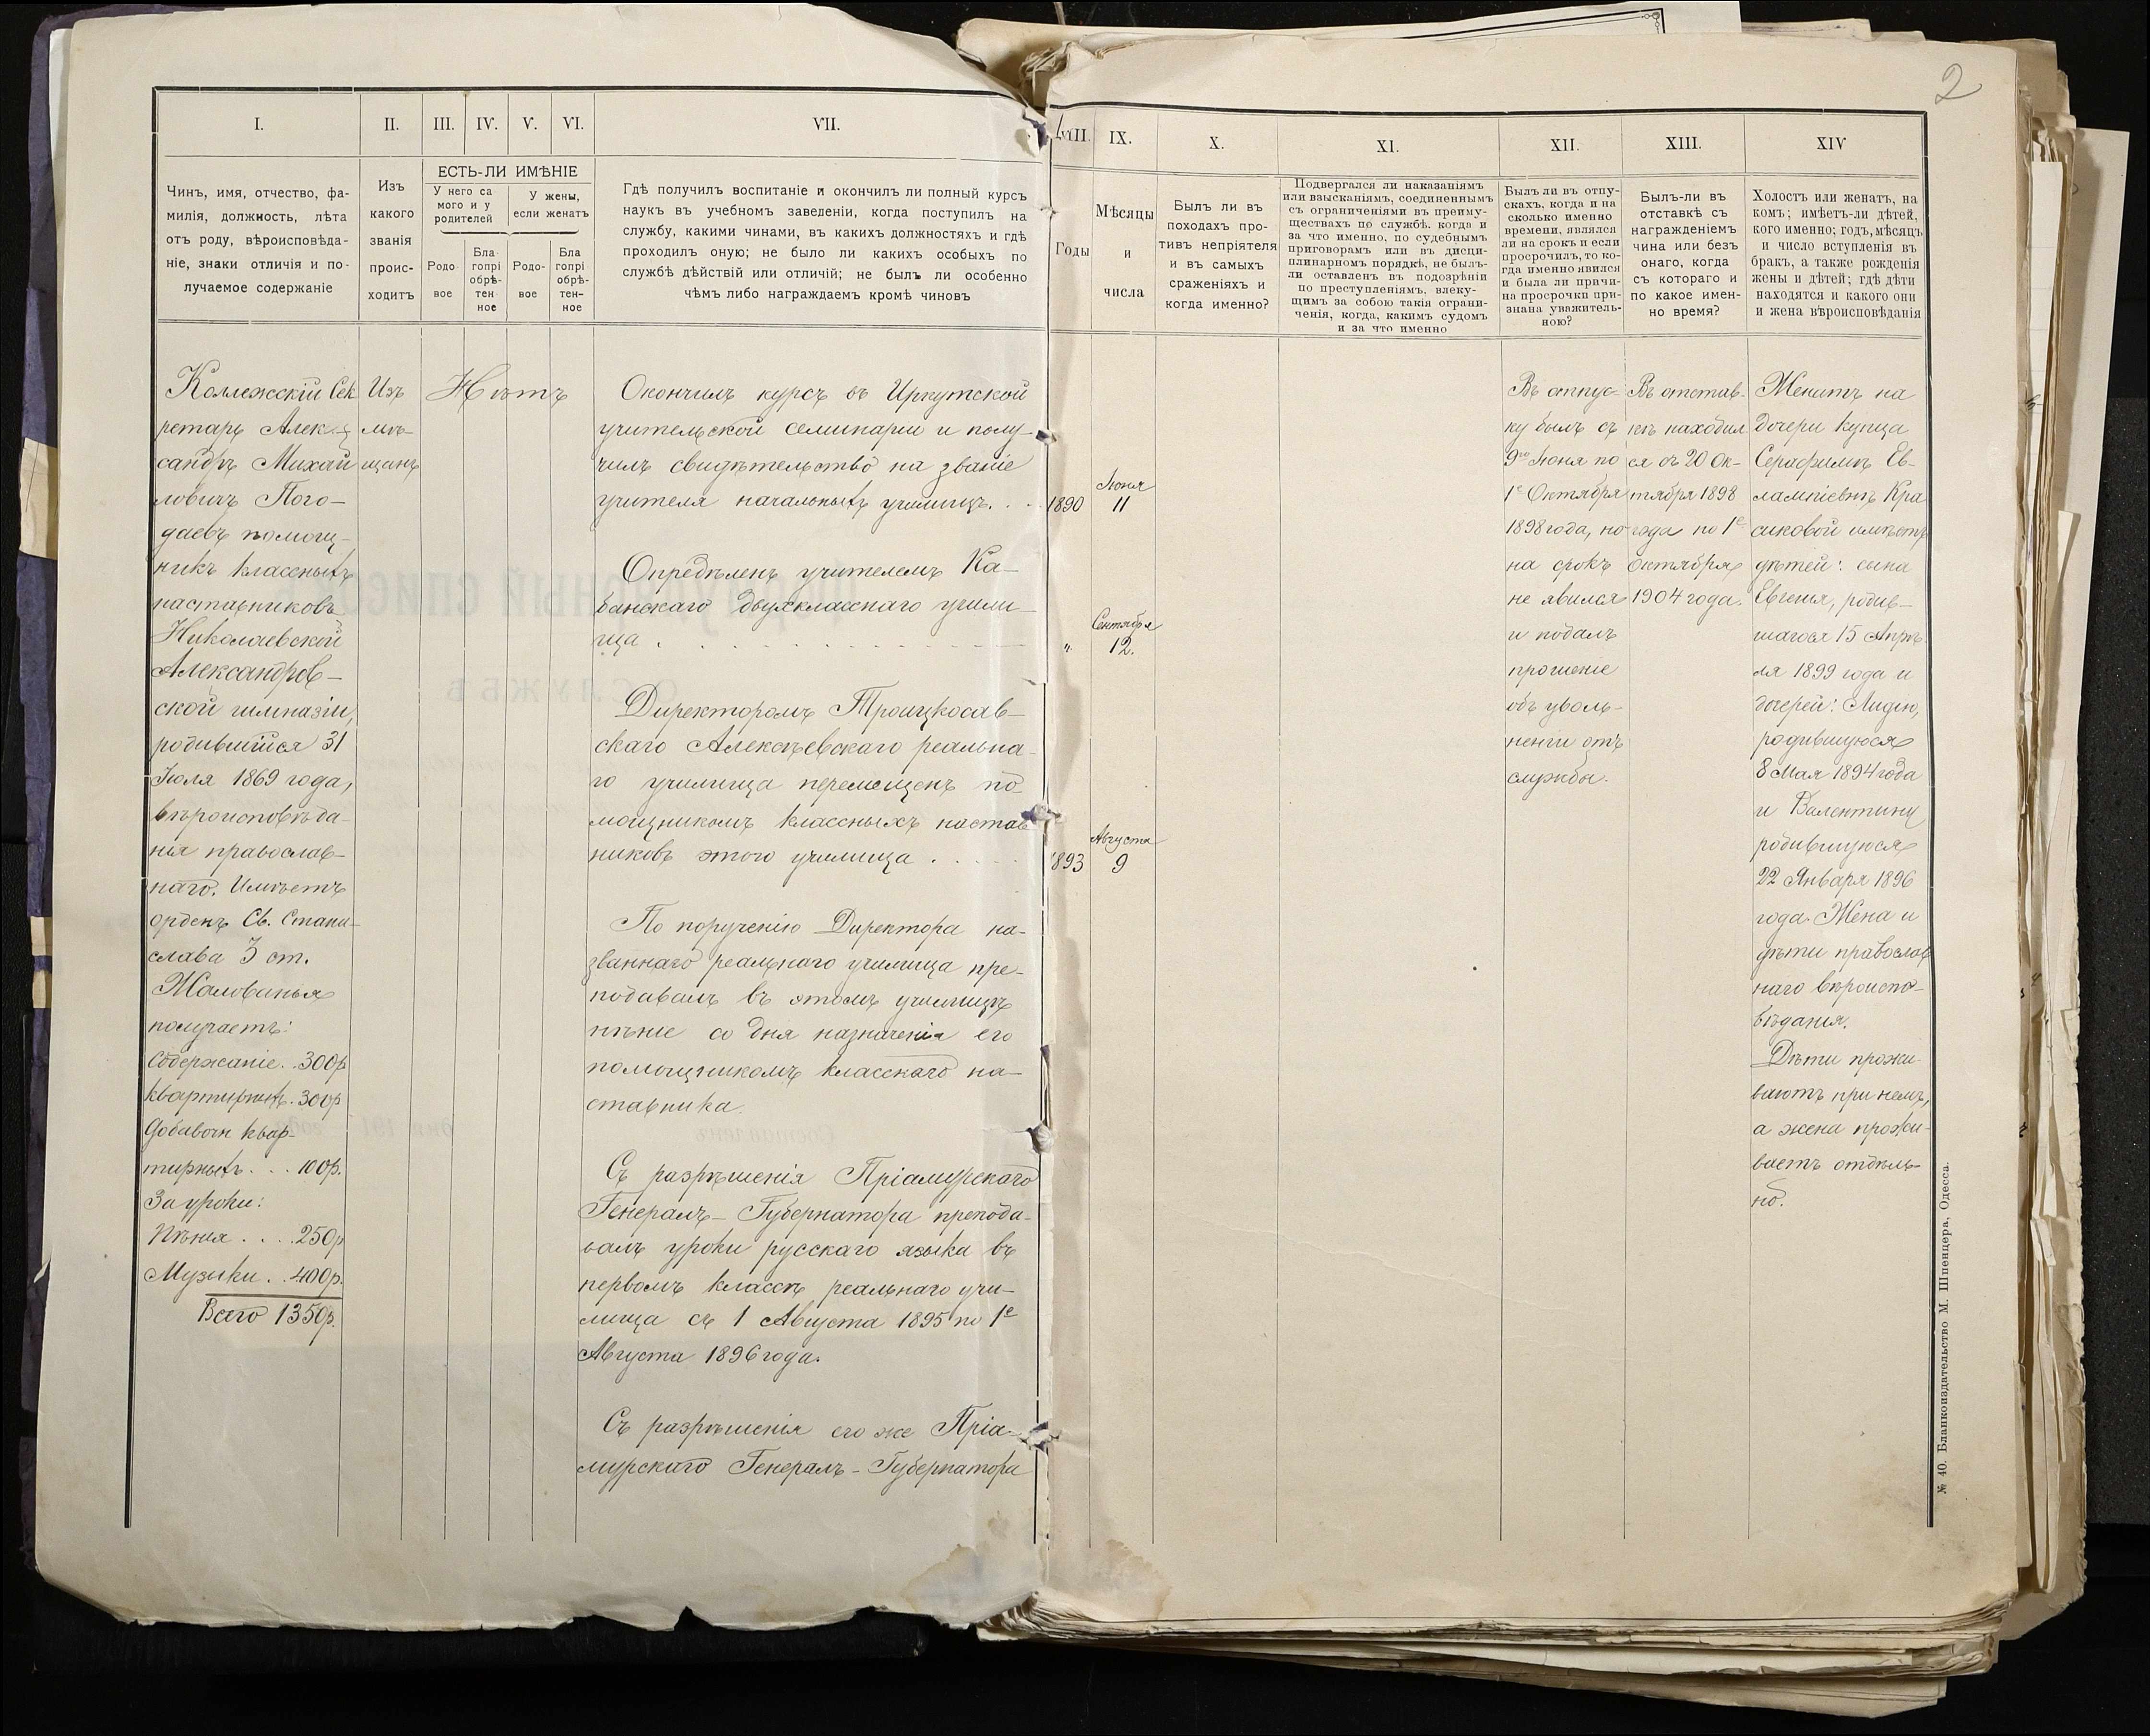 2
I.
II.
III.
IV.
V.
VI.
VII.
VIII.
IX.
X.
XI.
XII.
XIII.
XIV
Чинъ, имя, отчество, фа-
милія, должность, лѣта
отъ роду, вѣроисповѣда-
ніе, знаки отличія и по-
лучаемое содержаніе
Изъ
какого
званія
проис-
ходитъ
ЕСТЬ-ЛИ ИМѢНІЕ
У него са
мого и у
родителей
У жены,
если женатъ
Родо-
вое
Бла-
гопрі
обрѣ-
тен-
ное
Родо-
вое
Бла
гопрі
обрѣ-
тен-
ное
Гдѣ получилъ воспитаніе и окончилъ ли полный курсъ
наукъ въ учебномъ заведеніи, когда поступилъ на
службу, какими чинами, въ какихъ должностяхъ и гдѣ
проходилъ оную; не было ли какихъ особыхъ по
службѣ дѣйствій или отличій; не былъ ли особенно
чѣмъ либо награждаемъ кромѣ чиновъ
Годы
Мѣсяцы
и
числа
Былъ ли въ
походахъ про-
тивъ непріятеля
и въ самыхъ
сраженіяхъ и
когда именно?
Подвергался ли наказаніямъ
или взысканіямъ, соединеннымъ
съ ограниченіями въ преиму-
ществахъ по службѣ, когда и
за что именно, по судебнымъ
приговорамъ или въ дисци-
плинарномъ порядкѣ, не былъ-
ли оставленъ въ подозрѣніи
по преступленіямъ, влеку-
щимъ за собою такія ограни-
ченія, когда, какимъ судомъ
и за что именно
Былъ ли въ отпу-
скахъ, когда и на
сколько именно
времени, являлся
ли на срокъ и если
просрочилъ, то ко-
гда именно явился
и была ли причи-
на просрочки при-
знана уважитель-
ною?
Былъ-ли въ
отставкѣ съ
награжденіемъ
чина или безъ
онаго, когда
съ котораго и
по какое имен-
но время?
Холостъ или женатъ, на
комъ; имѣетъ-ли дѣтей,
кого именно; годъ, мѣсяцъ
и число вступленія въ
бракъ, а также рожденія
жены и дѣтей; гдѣ дѣти
находятся и какого они
и жена вѣроисповѣданія
Коллежскій Сек
ретарь Алек-
сандръ Михай
ловичъ Пого-
даевъ помощ-
никъ классныхъ
наставниковъ
Николаевской
Александров-
ской гимназіи,
родившійся 31
Іюля 1869 года,
вѣроисповѣда-
нія православ-
наго. Имѣетъ
орденъ Св. Стани-
слава 3 ст.
Жалованья
получаетъ:
Содержаніе . . 300р
Квартирныхъ . 300р
Добавочн квар-
тирныхъ . . . 100р.
За уроки:
Пѣнія . . . 250р
Музыки . . 400р.
Всего 1350р.
Изъ
мѣ-
щанъ
Нѣтъ
Окончилъ курсъ въ Иркутской
учительской семинаріи и полу-
чилъ свидѣтельство на званіе
учителя начальныхъ училищъ. . .
1890
Іюня
11
Опредѣленъ учителемъ Ка-
банскаго двухкласснаго учили-
ща .
"
Сентября
12.
Директоромъ Троицкосав-
скаго Алексѣевскаго реальна-
го училища перемѣщенъ по-
мощникомъ классныхъ настав
никовъ этого училища . . . .
1893
Августа
9
По порученію Директора на-
званнаго реальнаго училища пре-
подавалъ въ этомъ училищѣ
пѣніе со дня назначенія его
помощникомъ класснаго на-
ставника.
Съ разрѣшенія Пріамурскаго
Генералъ-Губернатора препода-
валъ уроки русскаго языка въ
первомъ классѣ реальнаго учи-
лища съ 1 Августа 1895 по 1е
Августа 1896 года.
Съ разрѣшенія его же Пріа-
мурскаго Генералъ-Губернатора
Въ отпус-
ку былъ съ
9го Іюня по
1е Октября
1898 года, но
на срокъ
не явился
и подалъ
прошеніе
объ уволь-
неніи отъ
службы.
Въ отстав-
кѣ находил
ся съ 20 Ок-
тября 1898
года по 1е
Октября
1904 года.
Женатъ на
дочери купца
Серафимѣ Ев-
лампіевнѣ Кра
сиковой имѣетъ
дѣтей: сына
Евгенія, родив-
шагося 15 Апрѣ
ля 1899 года и
дочерей: Лидію,
родившуюся
8 Мая 1894 года
и Валентину
родившуюся
22 Января 1896
года. Жена и
дѣти православ
наго вѣроиспо-
вѣданія.
Дѣти прожи-
ваютъ при немъ,
а жена прожи-
ваетъ отдѣль-
но.
№ 40. Бланкоиздательство М. Шпенцера, Одесса.